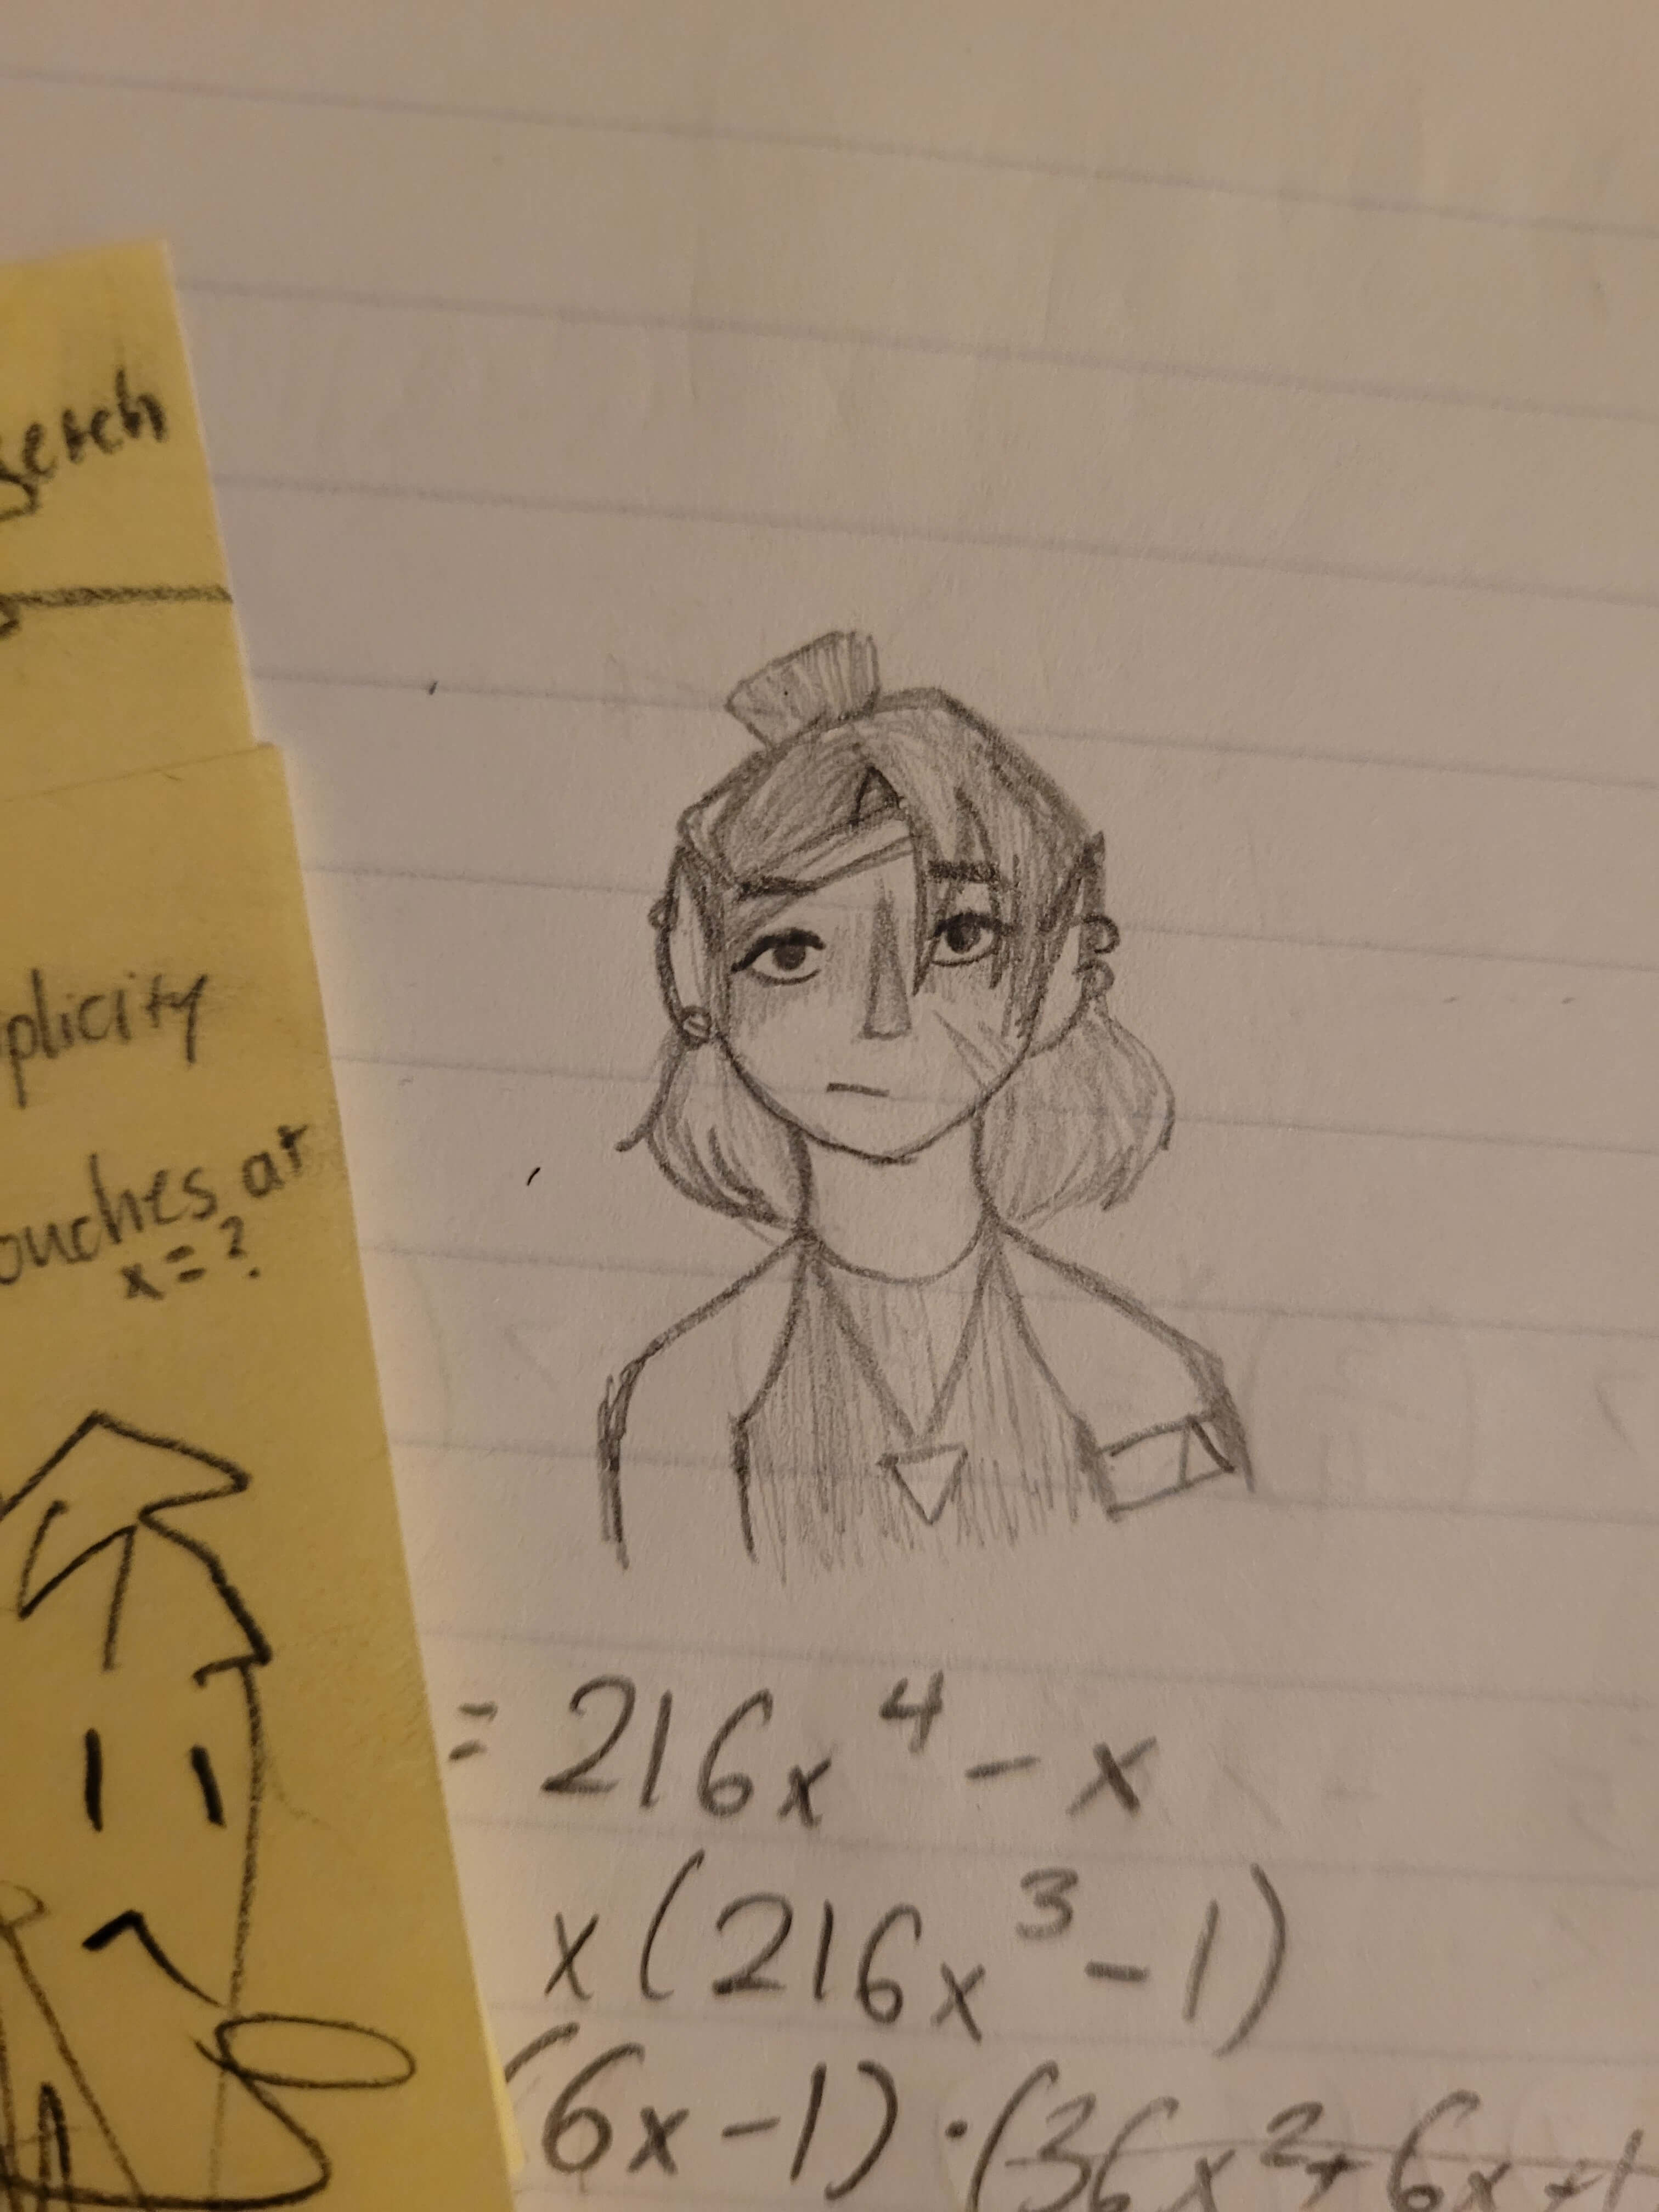 plicity
ouches at
x = ?
= 216x⁴ - x
x(216x³ - 1)
(6x - 1) · (36x² + 6x + 1